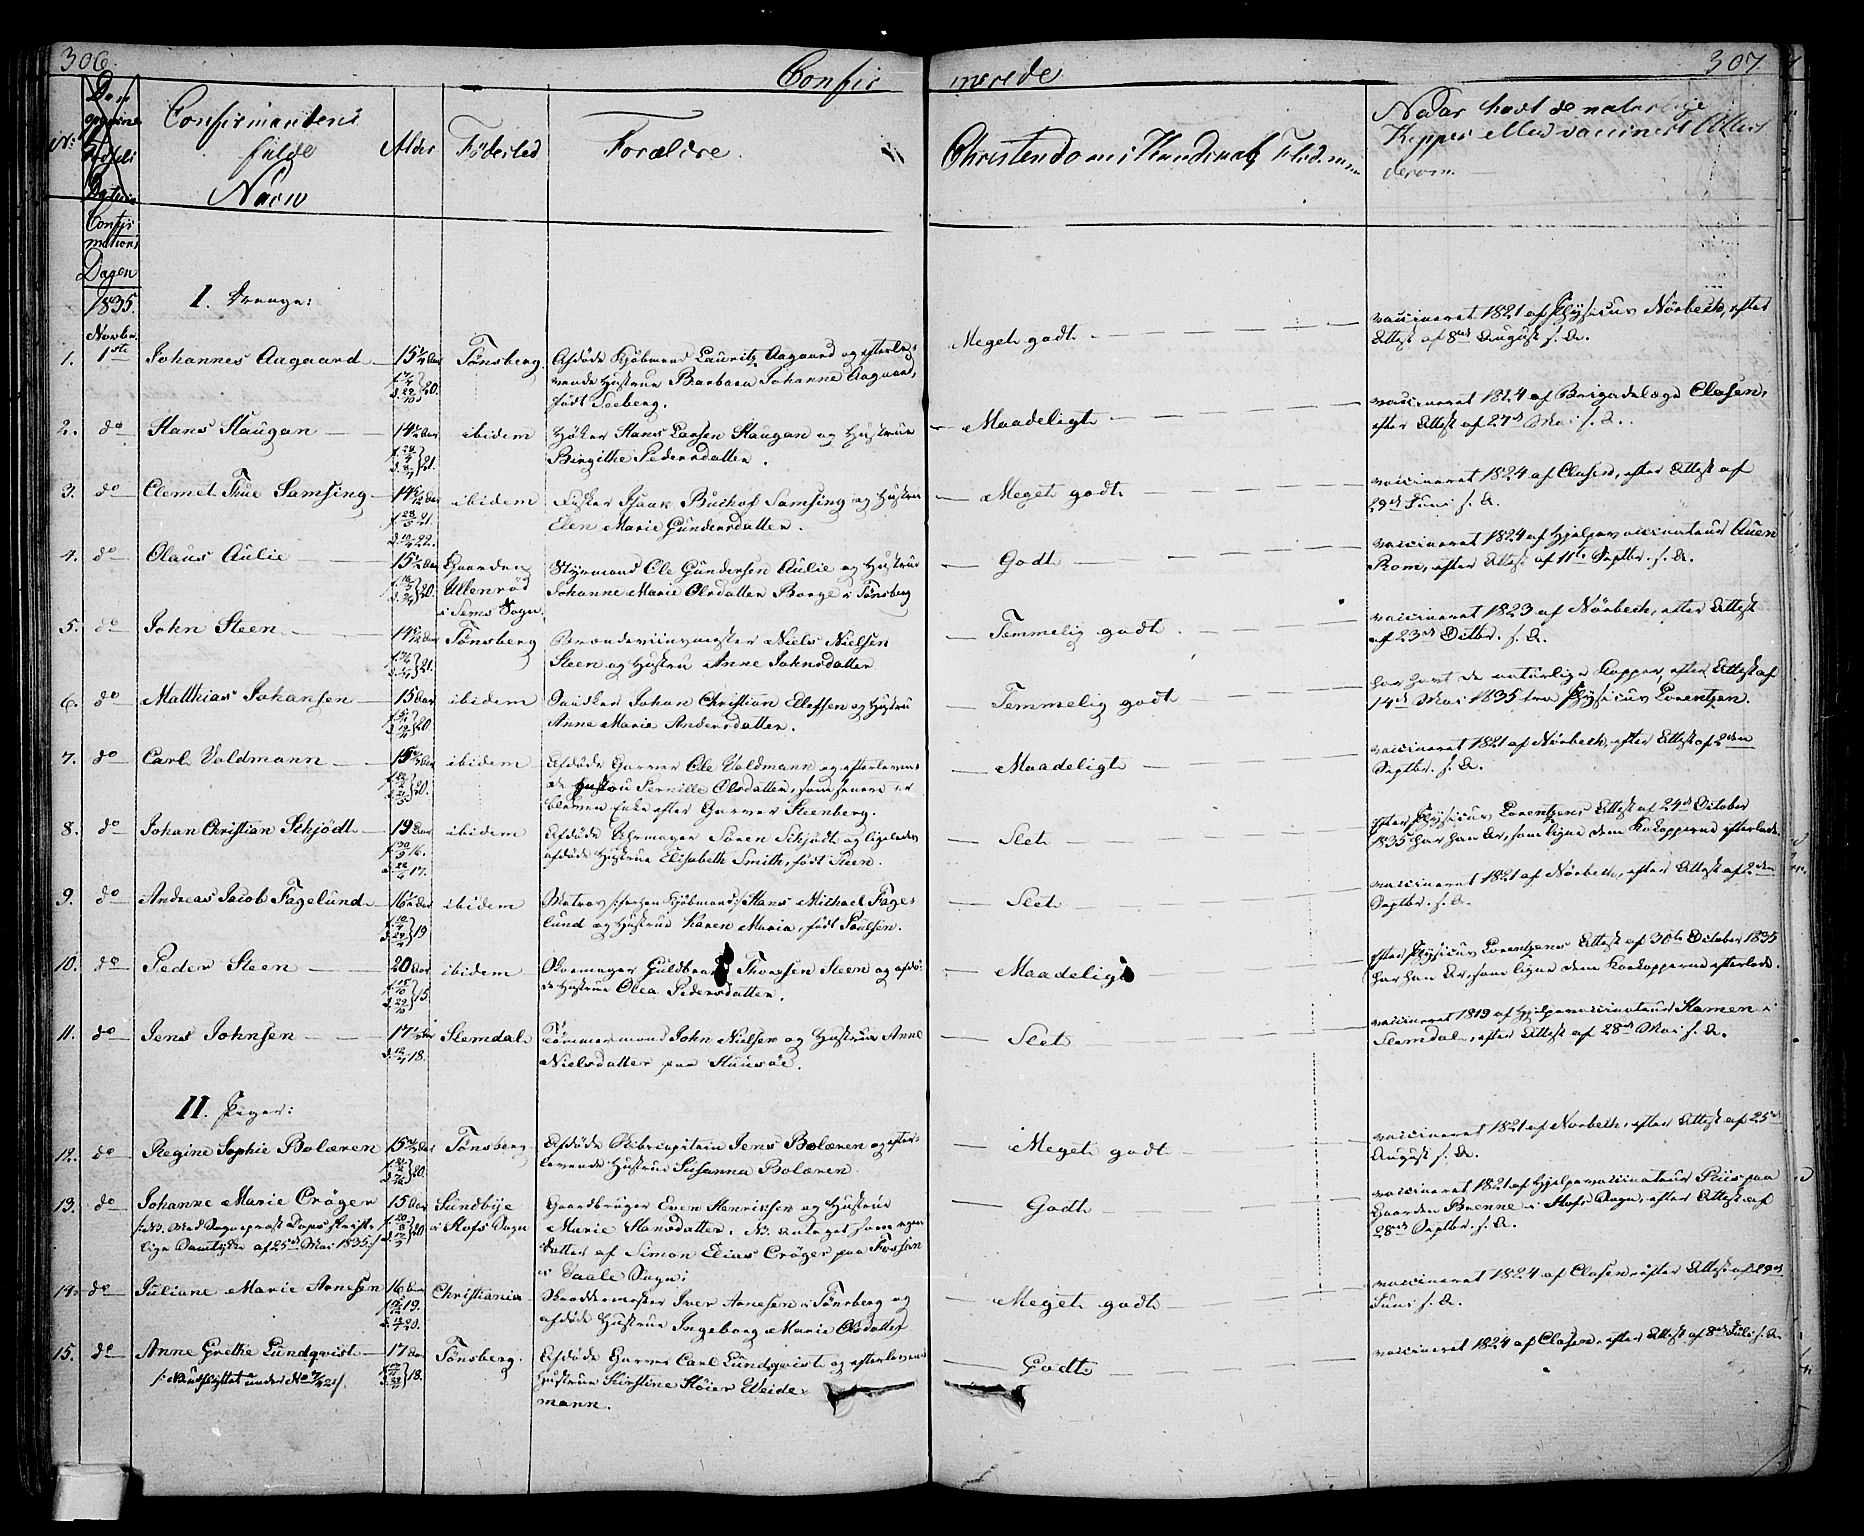 306.
Confir
merede
307
No:
Confirmandens
fulde
Navn
Alder
Födested
Forældre.
Christendoms Kundskab
Naar havt de naturlige
Kopper eller vaccineret
derom.
Confir
mations
Dagen
1835.
Novbr.
I. Drenge:
1. 1ste Johannes Aagaard 15 Aar Tönsberg. Afdöde Kjöbmand Lauritz Aagaard og efterle-
vende Hustrue Barbara Johanne Aagaard,
födt Seeberg.
Meget godt
vaccineret 1821 af Physicus Nörbech, efter
Attest af 8de August s. A.
2. do Hans Haugan 14 Aar ibidem Höker Hans Larsen Haugan og Hustrue
Birgithe Pedersdatter.
Maadeligt
vaccineret 1824 af Brigadelæge Clasen,
efter Attest af 27de Mai s. A.
3. do Clemet Thue Samsing 14 Aar ibidem Fisker Isaak Buchof Samsing og Hustrue
Elen Marie Gundersdatter.
Meget godt
vaccineret 1824 af Clasen, efter Attest af
29de Juni s. A.
4. do Olaus Aulie 15 Aar Gaarden
Ullenröd
i Sems Sogn. Styrmand Ole Gundersen Aulie og Hustrue
Johanne Marie Olsdatter Borge i Tönsberg
Godt
vaccineret 1824 af Hjelpevaccinateur Auen
Rom, efter Attest af 11te Septbr. s. A.
5. do John Steen 14 Aar Tönsberg Brændeviinsmester Niels Nielsen
Steen og Hustru Anne Johnsdatter
Temmelig godt
vaccineret 1823 af Nörbech, efter Attest
af 23de Octbr. s. A.
6. do Matthias Johansen 15 Aar ibidem Johan Christian Ellefsen og Hustru
Anne Marie Andersdatter.
Temmelig godt
har havt de naturlige Kopper, efter Attest af
14de Mai 1835 fra Physicus Lorentzen.
7. do Carl Valdmann 15 Aar ibidem Afdöde Garver Ole Valdmann og efterleven-
de Hustru Pernille Olsdatter, som senere er
bleven Enke efter Garver Steenberg.
Maadeligt
vaccineret 1821 af Nörbech, efter Attest af 2den
Septbr. s. A.
8. do Johan Christian Schjödt 19 Aar ibidem Afdöde Uhrmager Sören Schjödt og ligeledes
afdöde Hustrue Elisabeth Smith, födt Steen.
Slet
efter Physicus Lorentzens Attest af 24de October
1835 har han Ar, som ligne dem Kokopperne efterlade.
9. do Andreas Jacob Fagelund 16 Aar ibidem Matros /:forhen Kjöbmand:/ Hans Michael Fage-
lund og Hustrue Karen Maria, födt Poulsen.
Slet
vaccineret 1821 af Nörbech, efter Attest af 2den
Septbr. s. A.
10. do Peder Steen 20 Aar ibidem Skomager Guldbrand Thoresen Steen og afdö-
de Hustrue Olea Pedersdatter.
Maadeligt
efter Physicus Lorentzens Attest af 30te October 1835
har han Ar, som ligne dem Kokopperne efterlade.
11. do Jens Johnsen 17 Aar Slemdal Tömmermand John Nielsen og Hustrue Anne
Nielsdatter paa Huusöe.
Slet
vaccineret 1819 af Hjelpevaccinateur Hamen i
Slemdal, efter Attest af 28de Mai s. A.
II. Piger:
12. do Regine Sophie Bolæren 15 Aar Tönsberg Afdöde Skibscapitain Jens Bolæren og efter-
levende Hustrue Susanna Bolæren.
Meget godt
vaccineret 1821 af Nörbech, efter Attest af 25de
August s. A.
13. do Johanne Marie Cröger
/:NB. med Sogneprest Daps skrift-
lige Samtykke af 25de Mai 1835:/ 15 Aar Sundbye
i Hofs Sogn Gaardbruger Even Henriksen og Hustrue
Marie Hansdatter. NB. antaget som egen
Datter af Simon Elias Cröger paa Fossen
i Vaale Sogn:
Godt
vaccineret 1821 af Hjelpevaccinateur Puis paa
Gaarden Brenne i Hofs Sogn, efter Attest af
28de Septbr. s. A.
14. do Juliane Marie Arnesen 16 Aar Christiania Iver Arnesen i Tönsberg og
afdöde Hustrue Ingeborg Marie Olsdatter
Meget godt
vaccineret 1824 af Clasen efter Attest af 29de
Juni s. A.
15. do Anne Grethe Lundqvist
/:NB. udflyttet under No 17 Aar Tönsberg. Afdöde Garver Carl Lundqvist og efterlevende
Hustrue Kirstine Höier Weide-
mann.
Godt
vaccineret 1824 af Clasen, efter Attest af 8de Juli s. A.